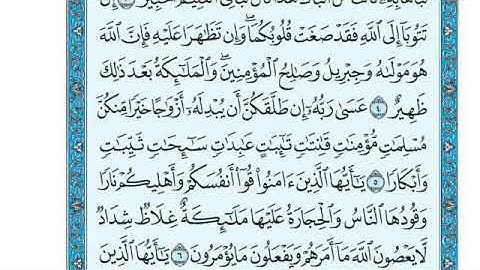 نَبَّأَهَا بِهِۦ قَالَتۡ مَنۡ أَنۢبَأَكَ هَٰذَاۖ قَالَ نَبَّأَنِيَ ٱلۡعَلِيمُ ٱلۡخَبِيرُ ٣ إِن
تَتُوبَآ إِلَى ٱللَّهِ فَقَدۡ صَغَتۡ قُلُوبُكُمَاۖ وَإِن تَظَٰهَرَا عَلَيۡهِ فَإِنَّ ٱللَّهَ
هُوَ مَوۡلَىٰهُ وَجِبۡرِيلُ وَصَٰلِحُ ٱلۡمُؤۡمِنِينَۖ وَٱلۡمَلَٰٓئِكَةُ بَعۡدَ ذَٰلِكَ
ظَهِيرٌ ٤ عَسَىٰ رَبُّهُۥٓ إِن طَلَّقَكُنَّ أَن يُبۡدِلَهُۥٓ أَزۡوَٰجًا خَيۡرٗا مِّنكُنَّ
مُسۡلِمَٰتٖ مُّؤۡمِنَٰتٖ قَٰنِتَٰتٖ تَٰٓئِبَٰتٍ عَٰبِدَٰتٖ سَٰٓئِحَٰتٖ ثَيِّبَٰتٖ
وَأَبۡكَارٗا ٥ يَٰٓأَيُّهَا ٱلَّذِينَ ءَامَنُواْ قُوٓاْ أَنفُسَكُمۡ وَأَهۡلِيكُمۡ نَارٗا
وَقُودُهَا ٱلنَّاسُ وَٱلۡحِجَارَةُ عَلَيۡهَا مَلَٰٓئِكَةٌ غِلَاظٞ شِدَادٞ
لَّا يَعۡصُونَ ٱللَّهَ مَآ أَمَرَهُمۡ وَيَفۡعَلُونَ مَا يُؤۡمَرُونَ ٦ يَٰٓأَيُّهَا ٱلَّذِينَ